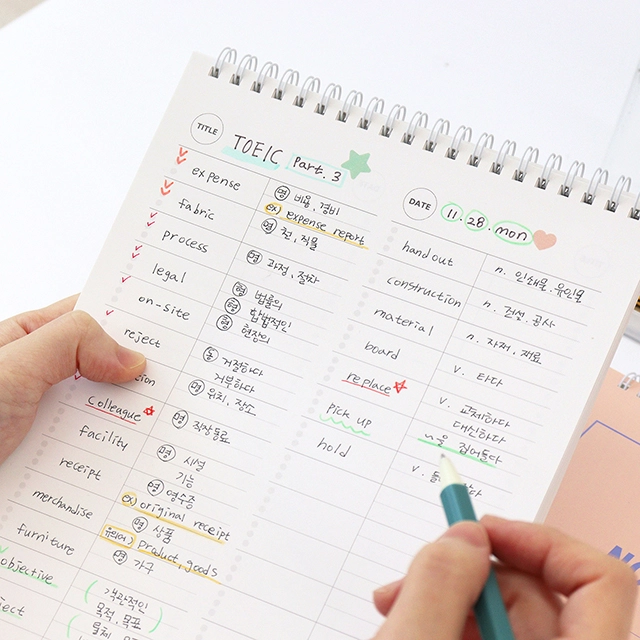 TITLE
TOEIC Part. 3
expense
명 비용, 경비
ex) expense report
fabric
명 천, 직물
process
명 과정, 절차
legal
형 법률의
형 합법적인
on-site
형 현장의
reject
동 거절하다
거부하다
명 위치, 장소
Colleague
명 직장동료
facility
명 시설
기능
receipt
명 영수증
ex) original receipt
merchandise
명 상품
유의어) product, goods
furniture
명 가구
objective
객관적인
목적, 목표
DATE
11. 28. mon
hand out
n. 인쇄물, 유인물
construction
n. 건설, 공사
material
n. 자재, 재료
board
v. 타다
replace
v. 교체하다
대신하다
Pick up
집어들다
hold
v.